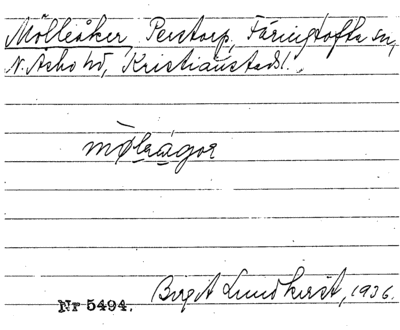 Mölleåker, Perstorp, Färingtofta sn,
N. Åsbo hd, Kristianstads l.
Nr 5494. Birgit Lundkvist, 1936.